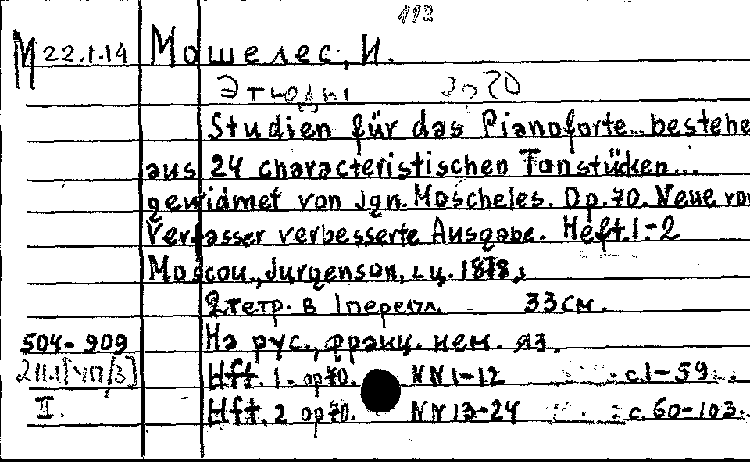 112
М 22.1.14 Мошелес, И.
Этюды Op 70
Studien für das Pianoforte.. bestehe
aus 24 characteristischen Tonstücken...
gewidmet von Jgn. Moscheles. Op. 70. Neue vom
Verfasser verbesserte Ausgabe. Heft. 1-2
Moscou, Jurgenson, ц. 1878,
2 тетр. в 1 перепл. 33 см.
504-909 На рус., франц. нем. яз.
Hft. 1. op70. NN 1-12 с. 1-59.
II. Hft. 2 op70. NN 13-24 с. 60-103.